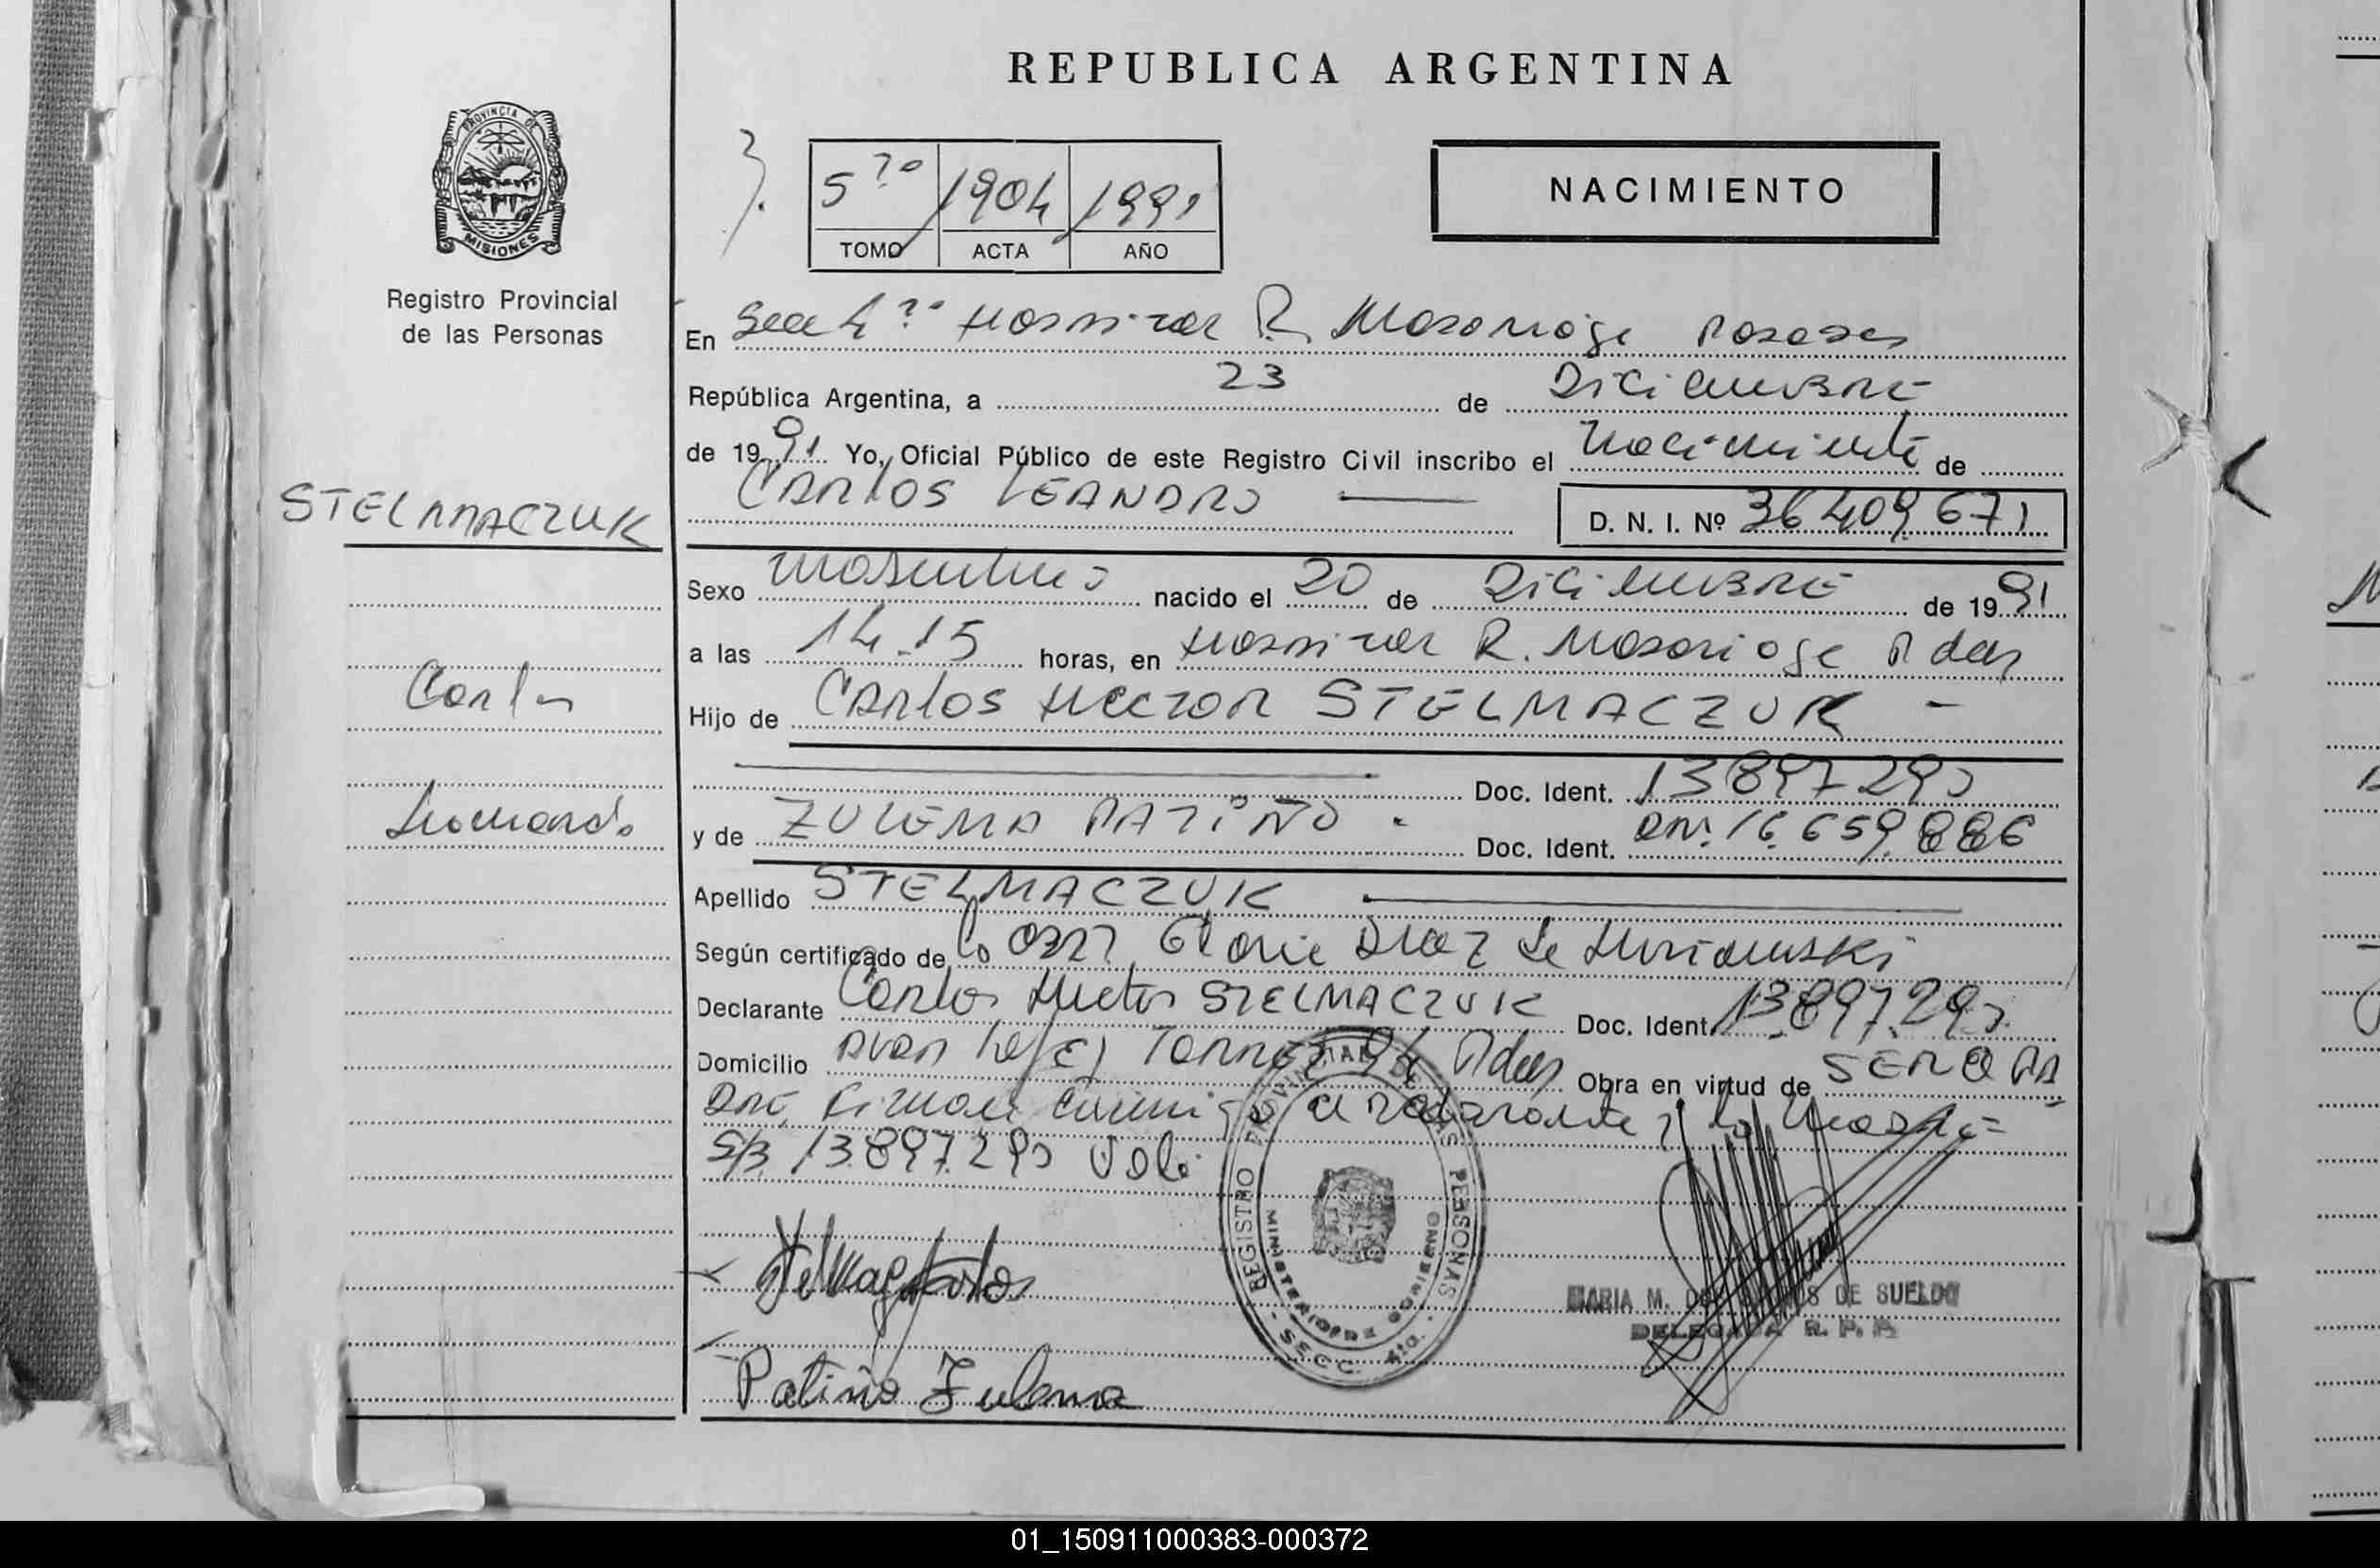 REPUBLICA ARGENTINA
PROVINCIA DE
MISIONES
Registro Provincial
de las Personas
5to 1904 1991
TOMO ACTA AÑO
NACIMIENTO
En Secc 4ta Hospital R. Madariaga Posadas
República Argentina, a 23 de Diciembre
de 1991 Yo, Oficial Público de este Registro Civil inscribo el Nacimiento de
CARLOS LEANDRO
D. N. I. Nº 36409671
STELMACZUK
Carlos
Leandro
Sexo Masculino nacido el 20 de Diciembre de 1991
a las 14.15 horas, en Hospital R. Madariaga Pdas
Hijo de CARLOS HECTOR STELMACZUK -
Doc. Ident. 13897290
y de ZULEMA PATIÑO. Doc. Ident. DNI. 16.659.886
Apellido STELMACZUK
Según certificado de la Gloria Diaz de
Declarante Carlos Hector STELMACZUK Doc. Ident. 13.897.290
Domicilio Torres 94 Pdas Obra en virtud de SER EL PA
DRE, Firman conmigo el declarante y la Madre =
S/B 13.897.290 Vale
REGISTRO PROVINCIAL DE LAS PERSONAS
MINISTERIO DE GOBIERNO
- SECC. 4ta. -
MARIA M. DE SUELDO
DELEGADA R. P. P.
Patiño Zulema
01_150911000383-000372